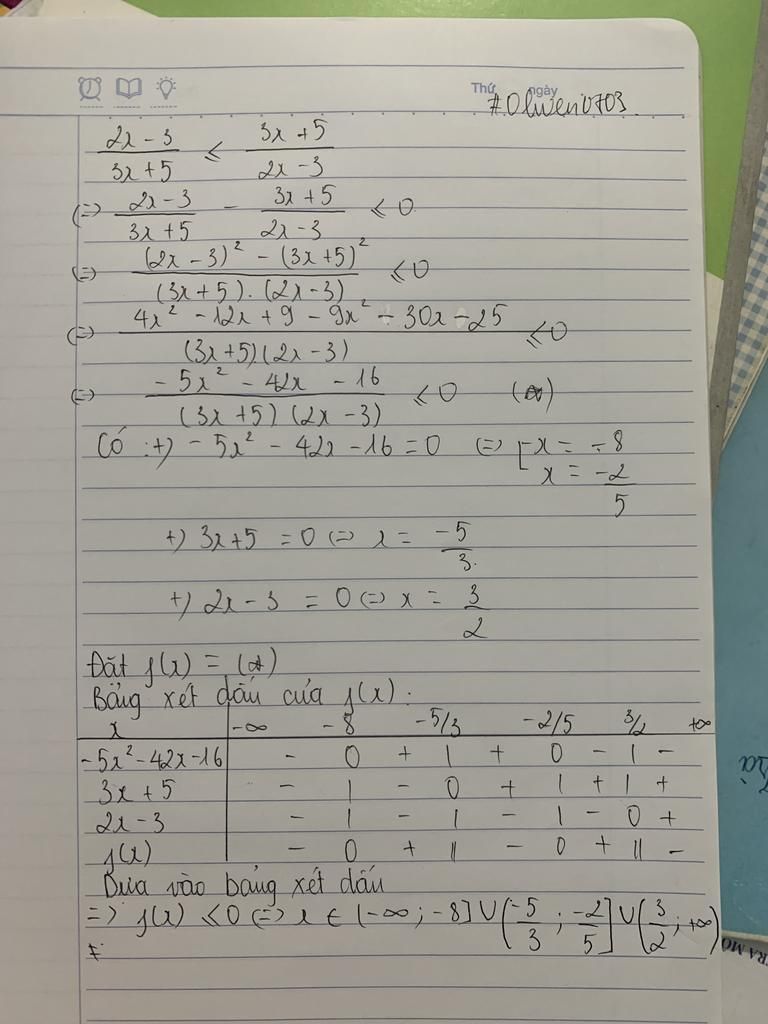 Thứ ngày
2x - 3 / 3x + 5 ≤ 3x + 5 / 2x - 3
(=) 2x - 3 / 3x + 5 - 3x + 5 / 2x - 3 ≤ 0
(=) (2x - 3)² - (3x + 5)² / (3x + 5) . (2x - 3) ≤ 0
(=) 4x² - 12x + 9 - 9x² - 30x - 25 / (3x + 5)(2x - 3) ≤ 0
(=) - 5x² - 42x - 16 / (3x + 5) (2x - 3) ≤ 0 (*)
Có : +) - 5x² - 42x - 16 = 0 (=) [ x = - 8
x = -2/5
+) 3x + 5 = 0 (=) x = -5/3
+) 2x - 3 = 0 (=) x = 3/2
Đặt f(x) = (*)
Bảng xét dấu của f(x) :
x | -∞ -8 -5/3 -2/5 3/2 +∞
-5x² - 42x - 16 | - 0 + | + 0 - | -
3x + 5 | - | - 0 + | + | +
2x - 3 | - | - | - | - 0 +
f(x) | - 0 + || - 0 + || -
Dựa vào bảng xét dấu
=> f(x) ≤ 0 (=) x ∈ (-∞ ; -8] ∪ (-5/3 ; -2/5] ∪ (3/2 ; +∞)